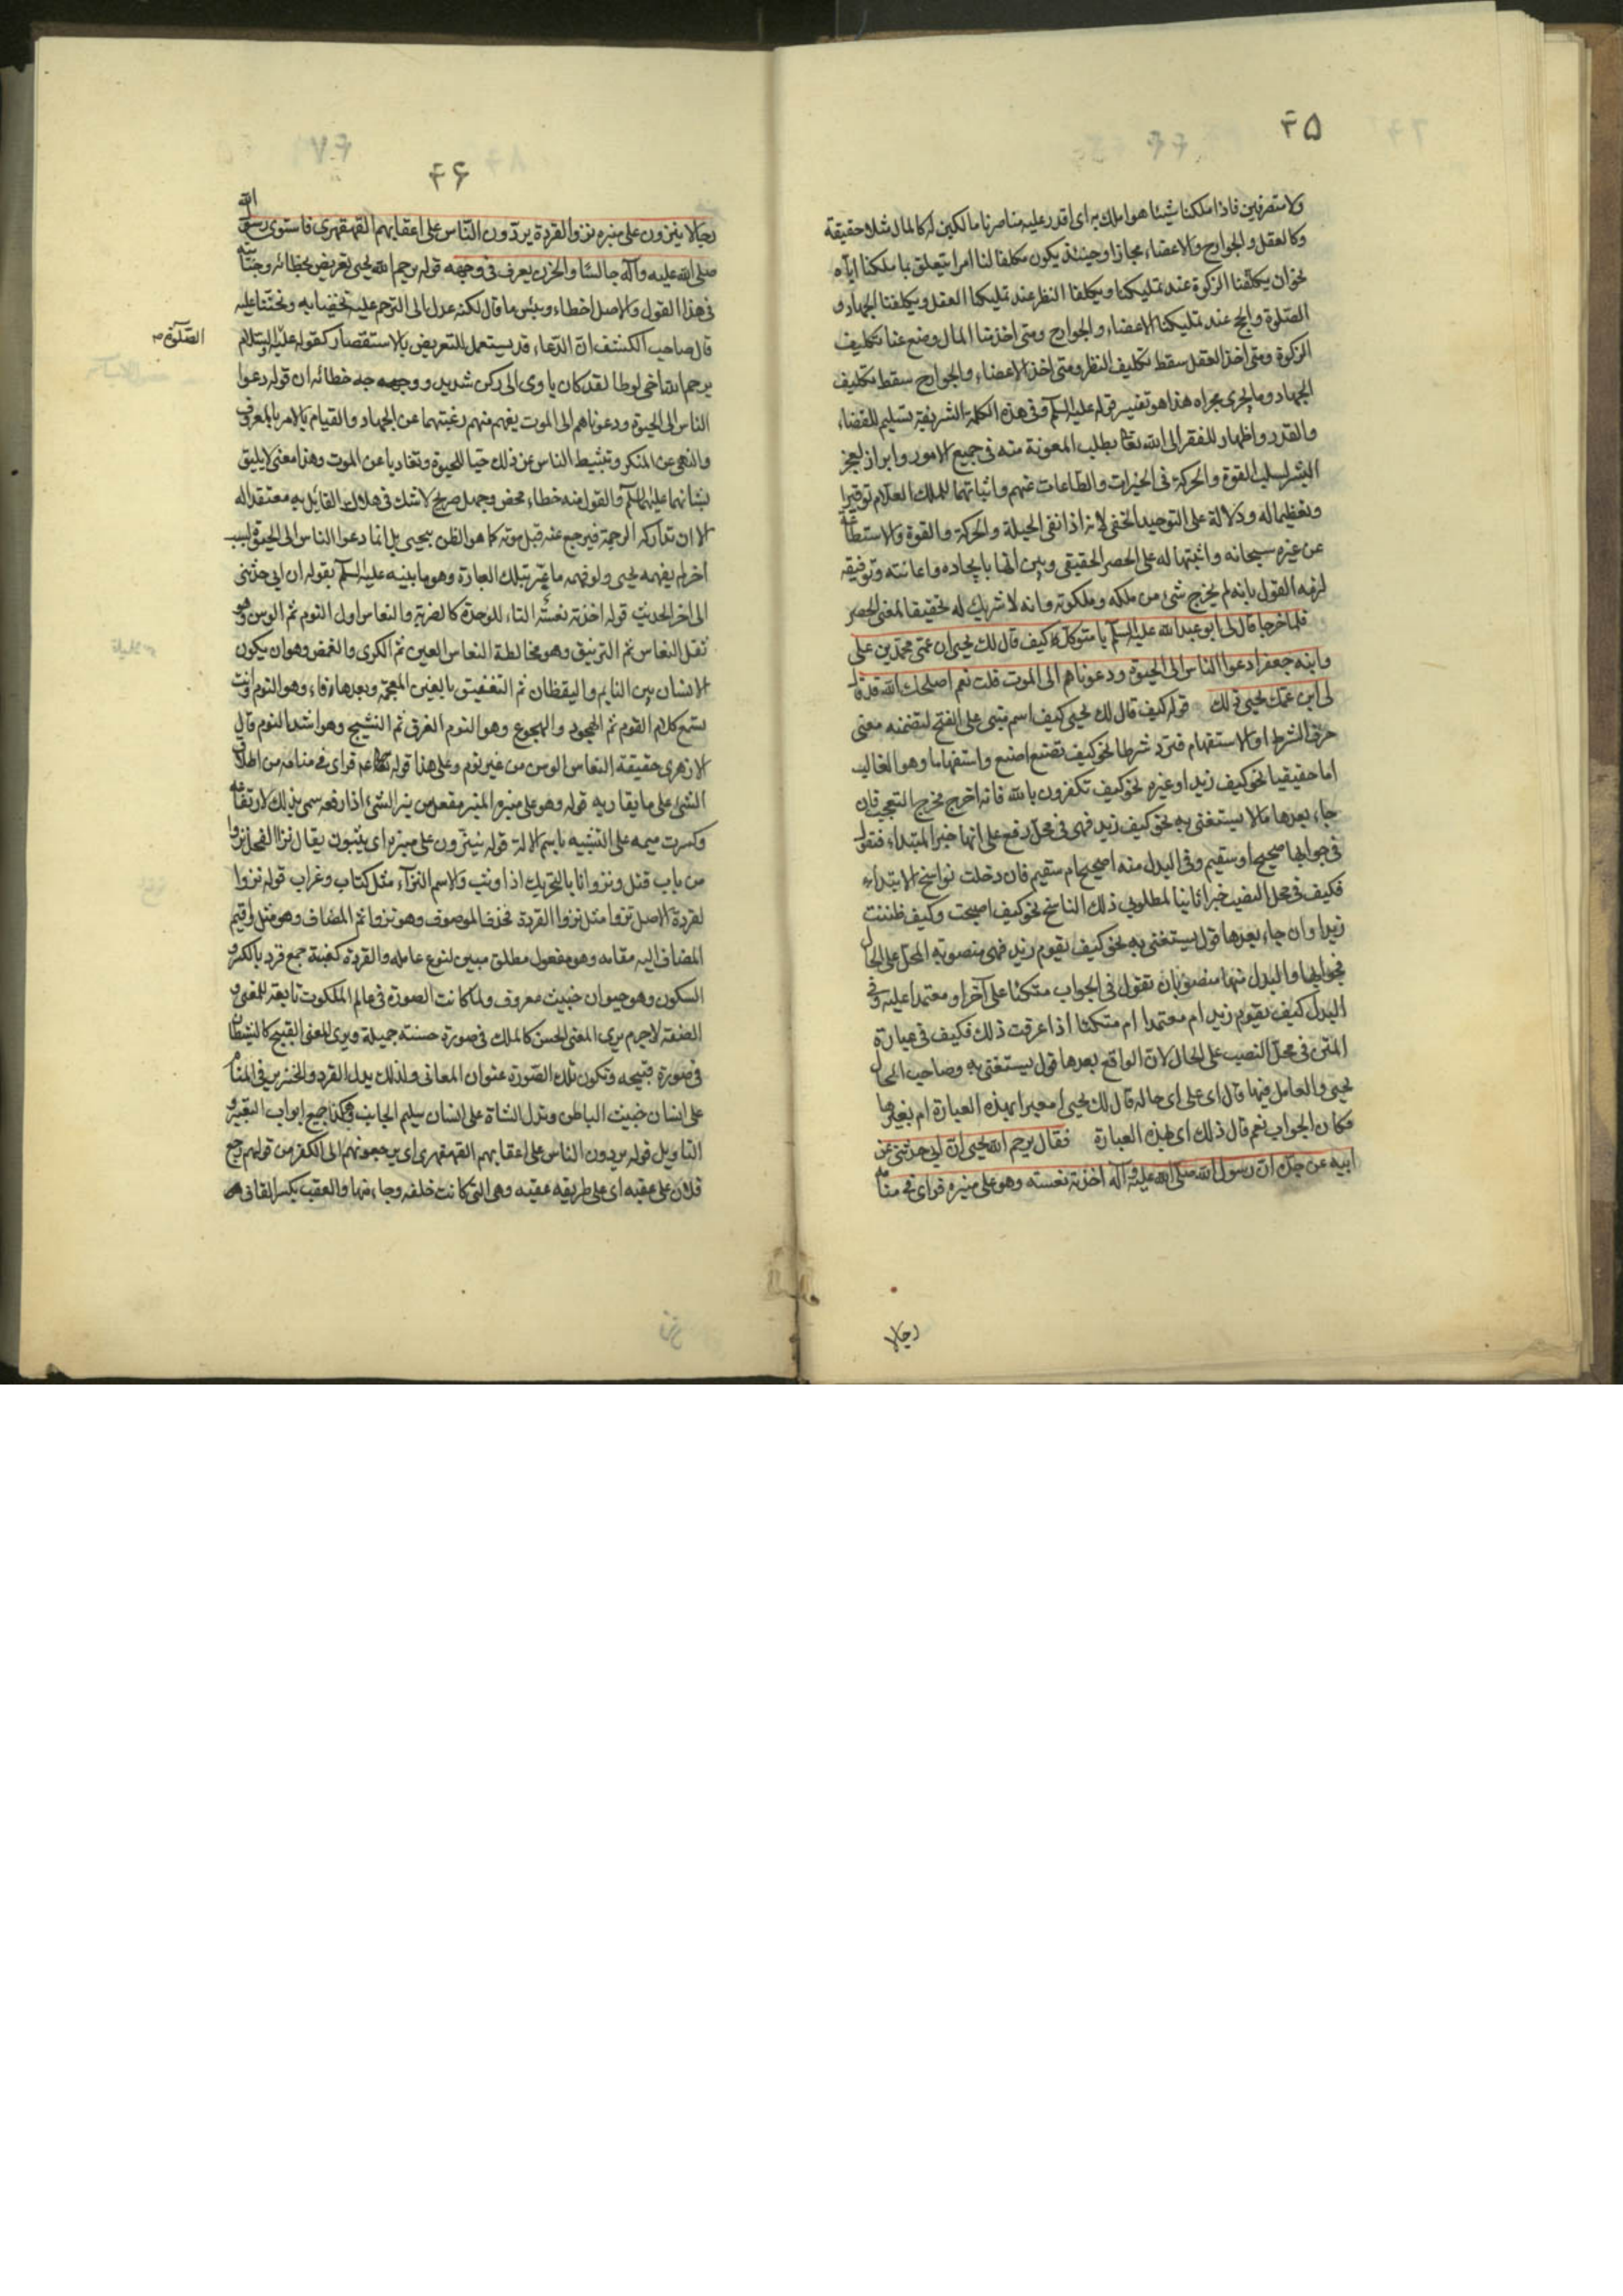 ۴۵
ولا متصرفين فاذا ملكنا شيئا هو املك به اى اقدر عليه منا صرنا مالكين له كالمال مثلا حقيقة
وكالعقل والجوارح والاعضاء مجازا وحينئذ يكون مكلفا لنا امرا يتعلق بما ملكنا اياه
نحو ان يكلفنا الزكوة عند تمليكنا ويكلفنا النظر عند تمليكنا العقل ويكلفنا الجهاد و
الصلوة والحج عند تمليكنا الاعضاء والجوارح ومتى اخذ منا المال وضع عنا تكليف
الزكوة ومتى اخذ العقل سقط تكليف النظر ومتى اخذ الاعضاء والجوارح سقط تكليف
الجهاد وما يجرى مجراه هذا هو تفسير قوله عليه السلم وفى هذه الكلمة الشريفة تسليم للقضاء
والقدر واظهار للفقر الى الله تعا بطلب المعونة منه فى جميع الامور وابراز لعجز
البشر بسلب القوة والحركة فى الخيرات والطاعات عنهم واثباتها للملك العلام توقيرا
وتعظيما له ودلالة على التوحيد الخفى لانه اذا نفى الحيلة والحركة والقوة والاستطاعة
عن غيره سبحانه واثبتها له على الحصر الحقيقى وبين انها بايجاده واعانته وتوفيقه
لزمه القول بانه لم يخرج شئ من ملكه وملكوته وانه لا شريك له تحقيقا لمعنى الحصر
فلما خرجا قال لى ابو عبد الله عليه السلم يا متوكل كيف قال لك يحيى ان عمى محمد بن على
وابنه جعفرا دعوا الناس الى الحيوة ودعوناهم الى الموت قلت نعم اصلحك الله قد قال
لى ابن عمك يحيى ذلك قوله كيف قال لك يحيى كيف اسم مبنى على الفتح لتضمنه معنى
حرف الشرط او الاستفهام فترد شرطا نحو كيف تصنع اصنع واستفهاما وهو الغالب
اما حقيقيا نحو كيف زيد او غيره نحو كيف تكفرون بالله فانه اخرج مخرج التعجب فان
جاء بعدها ما لا يستغنى به نحو كيف زيد فهى فى محل رفع على انها خبر المبتداء فتقول
فى جوابها صحيح او سقيم وفى البدل منه اصحيح ام سقيم فان دخلت نواسخ الابتداء
فكيف فى محل النصب خبرا ثانيا لمطلوبى ذلك الناسخ نحو كيف اصبحت وكيف ظننت
زيدا وان جاء بعدها قول يستغنى به نحو كيف يقوم زيد فهى منصوبة المحل على الحال
فجوابها والبدل منها منصوبان تقول فى الجواب متكئا على آخر او معتمدا عليه وفى
البدل كيف يقوم زيد ام معتمدا ام متكئا اذا عرفت ذلك فكيف فى عبارة
المتن فى محل النصب على الحال لان الواقع بعدها قول يستغنى به وصاحب الحال
يحيى والعامل فيها قال اى على اى حاله قال لك يحيى امعبرا بهذه العبارة ام بغيرها
فكان الجواب نعم قال ذلك اى بهذه العبارة فقال يرحم الله يحيى ان ابى حدثنى عن
ابيه عن جده ان رسول الله صلى الله عليه وآله اخذته نعسته وهو على منبره فراى فى منامه
رجالا
۴۶
رجالا ينزون على منبره نزو القردة يردون الناس على اعقابهم القهقهرى فاستوى رسول الله
صلى الله عليه وآله جالسا والحزن يعرف فى وجهه قوله يرحم الله يحيى تعريض بخطائه وجنايته
فى هذا القول والاصل اخطاء وبئس ما قال لكنه عدل الى الترحم عليه تحضيا به وتحننا عليه
قال صاحب الكشف ان الدعاء قد يستعمل للتعريض بالاستقصار كقوله عليه الصلوة والسلام
يرحم الله اخى لوطا لقد كان ياوى الى ركن شديد ووجهه خطائه ان قوله دعوا
الناس الى الحيوة ودعوناهم الى الموت يفهم منهم رغبتهما عن الجهاد والقيام بالامر بالمعروف
والنهى عن المنكر وتثبيط الناس عن ذلك حبا للحيوة وتفاديا عن الموت وهذا معنى لا يليق
بشانهما عليهما السلم والقول منه خطاء محض وجهل صريح لا شك فى هلاك القائل به معتقدا له
الا ان تداركه الرحمة فيرجع عنه قبل موته كما هو الظن بيحيى بل انما دعوا الناس الى الحيوة لسبب
اخر لم يفهمه يحيى ولو فهمه ما عبر بتلك العبارة وهو ما بينه عليه السلم بقوله ان ابى حدثنى
الى اخر الحديث قوله اخذته نعسته التاء للوحدة كالضربة والنعاس اول النوم ثم الوسن وهو
ثقل النعاس ثم الترنيق وهو مخالطة النعاس العين ثم الكرى والغمض وهو ان يكون
الانسان بين النايم واليقظان ثم التغفيق بالغين المعجمة وبعدها فاء وهو النوم وانت
تسمع كلام القوم ثم الهجود والهجوع وهو النوم الغرق ثم التشبيح وهو اشد النوم قال
الازهرى حقيقة النعاس الوسن من غير نوم وعلى هذا قوله فراى فى منامه من اطلاق
الشئ على ما يقاربه قوله وهو على منبره المنبر مفعل من نبر الشئ اذا رفعه سمى بذلك لارتفاعه
وكسرت ميمه على التشبيه باسم الالة قوله ينزون على منبره اى يثبون يقال نزا الفحل نزوا
من باب قتل ونزوانا بالتحريك اذا وثب والاسم النزاء مثل كتاب وغراب قوله نزو
القردة الاصل نزوا مثل نزو القردة فحذف الموصوف وهو نزوا ثم المضاف وهو مثل واقيم
المضاف اليه مقامه وهو مفعول مطلق مبين لنوع عامله والقردة كعنبة جمع قرد بالكسر و
السكون وهو حيوان خبيث معروف ولما كانت الصورة فى عالم الملكوت تابعة للمعنى و
الصفة لا جرم يرى المعنى الحسن كالملك فى صورة حسنة جميلة ويرى المعنى القبيح كالشيطان
فى صورة قبيحه وتكون تلك الصورة عنوان المعانى ولذلك يدل القرد والخنزير فى المنام
على انسان خبيث الباطن وتدل الشاة على انسان سليم الجانب وهكذا جميع ابواب التعبير و
التاويل قوله يردون الناس على اعقابهم القهقهرى اى يرجعونهم الى الكفر من قولهم رجع
فلان على عقبه اى على طريقه عقبه وهى التى كانت خلفه وجاء منها والعقب بكسر القاف